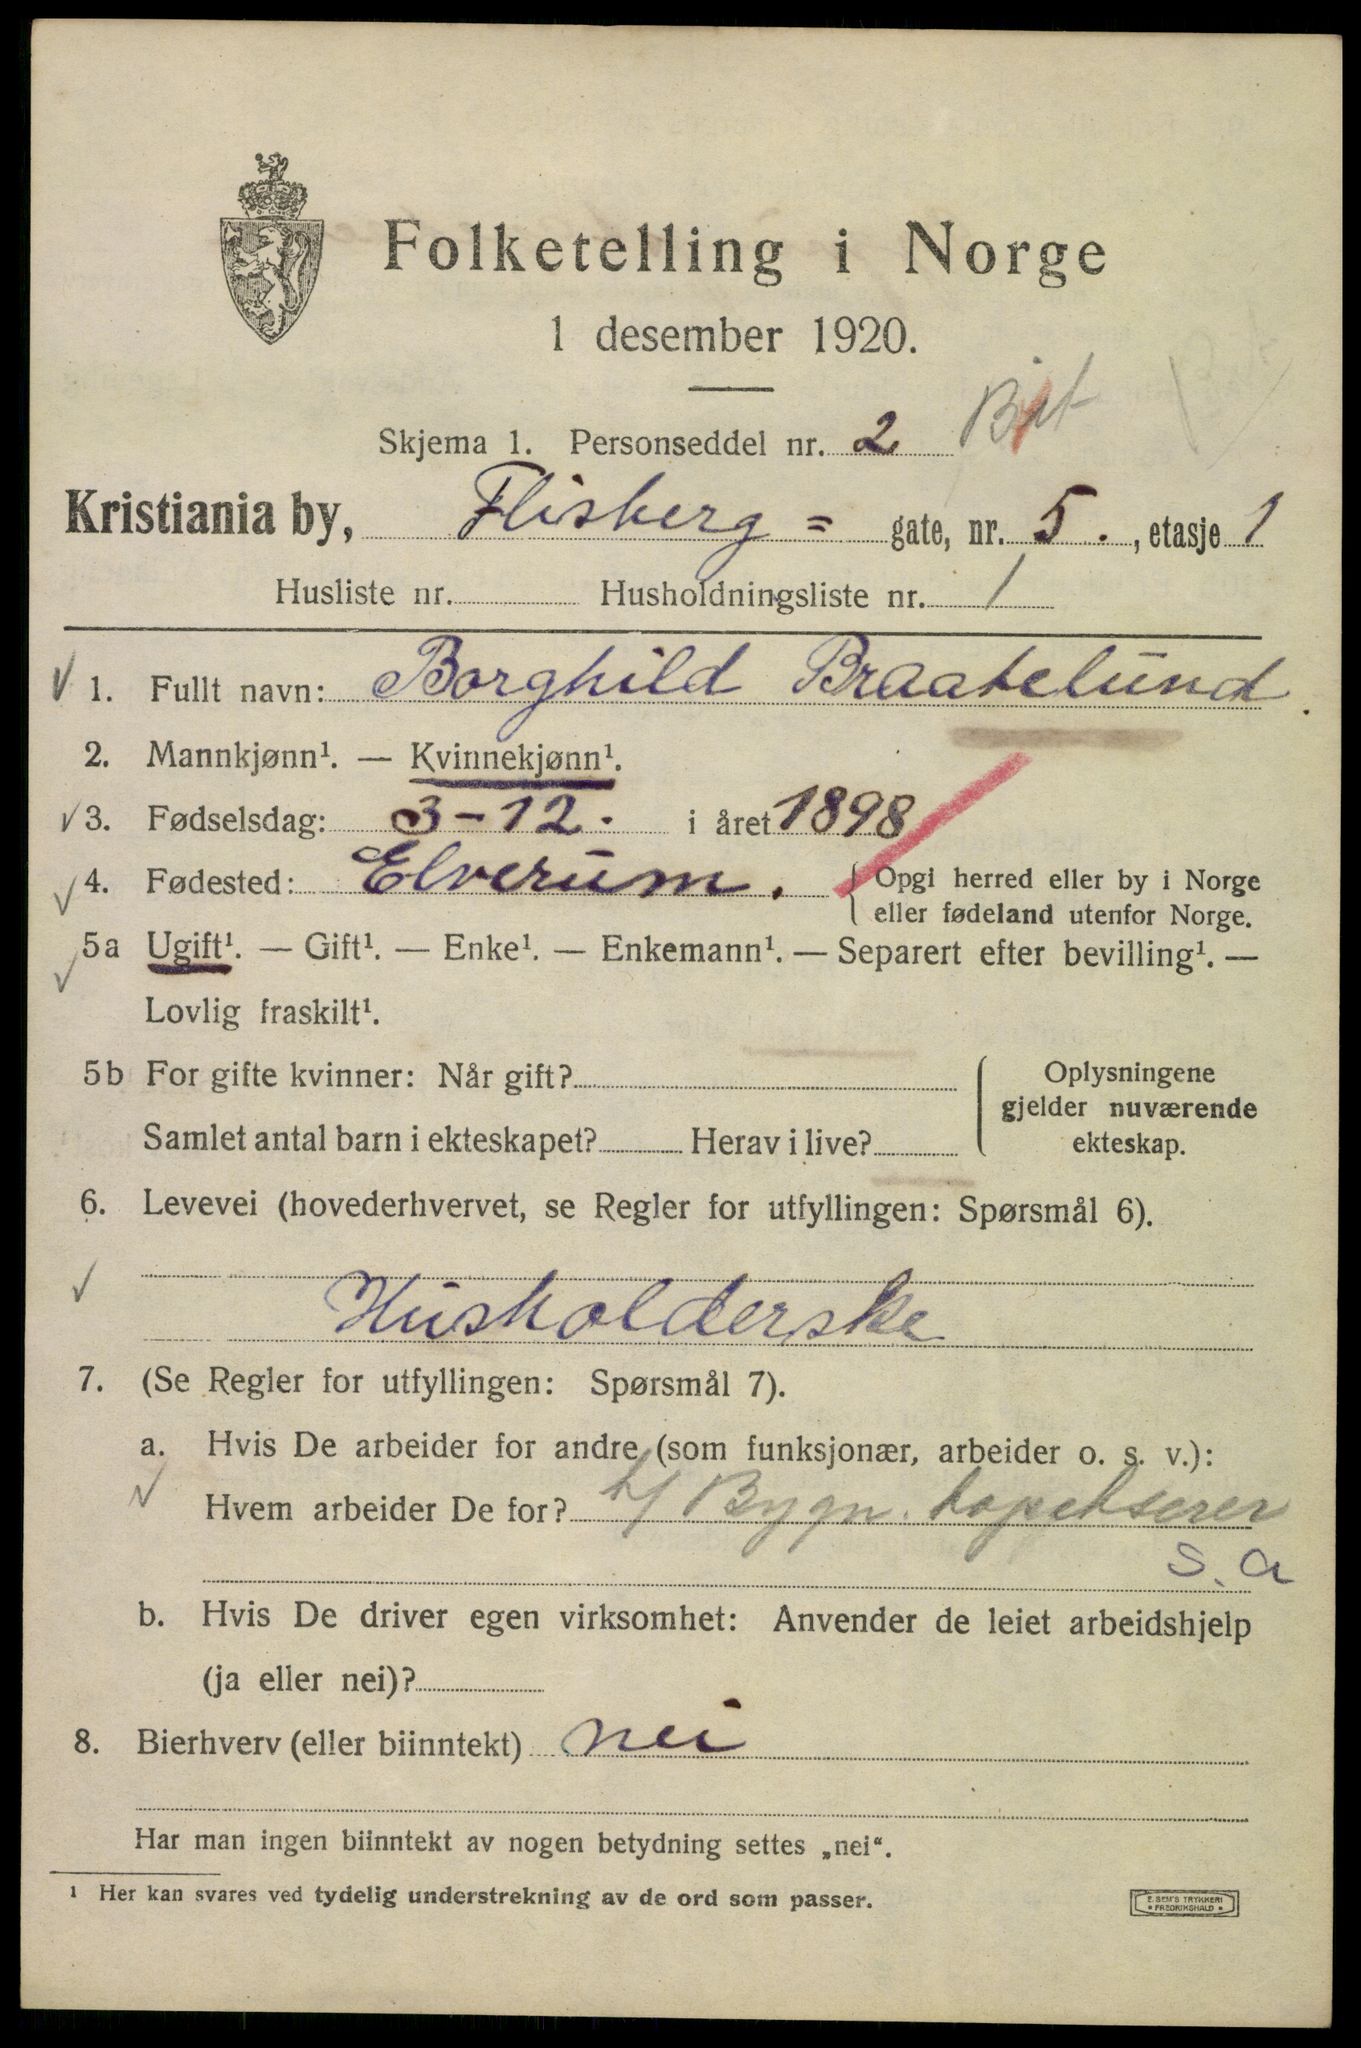 Folketelling i Norge
1 desember 1920.
Skjema 1. Personseddel nr. 2
Kristiania by, Flisberg = gate, nr. 5., etasje 1
Husliste nr. Husholdningsliste nr. 1
1. Fullt navn: Borghild Braatelund.
2. Mannkjønn¹. — Kvinnekjønn¹.
3. Fødselsdag: 3-12. i året 1898
4. Fødested: Elverum. Opgi herred eller by i Norge
eller fødeland utenfor Norge.
5a Ugift¹. — Gift¹. — Enke¹. — Enkemann¹. — Separert efter bevilling¹. —
Lovlig fraskilt¹.
5b For gifte kvinner: Når gift?
Samlet antal barn i ekteskapet? Herav i live?
Oplysningene
gjelder nuværende
ekteskap.
6. Levevei (hovederhvervet, se Regler for utfyllingen: Spørsmål 6).
Husholderske
7. (Se Regler for utfyllingen: Spørsmål 7).
a. Hvis De arbeider for andre (som funksjonær, arbeider o. s. v.):
Hvem arbeider De for? h/ Bygn. tapetserer
s. a
b. Hvis De driver egen virksomhet: Anvender de leiet arbeidshjelp
(ja eller nei)?
8. Bierhverv (eller biinntekt) nei
Har man ingen biinntekt av nogen betydning settes „nei“.
¹ Her kan svares ved tydelig understrekning av de ord som passer.
E. SEM'S TRYKKERI
* FREDRIKSHALD *